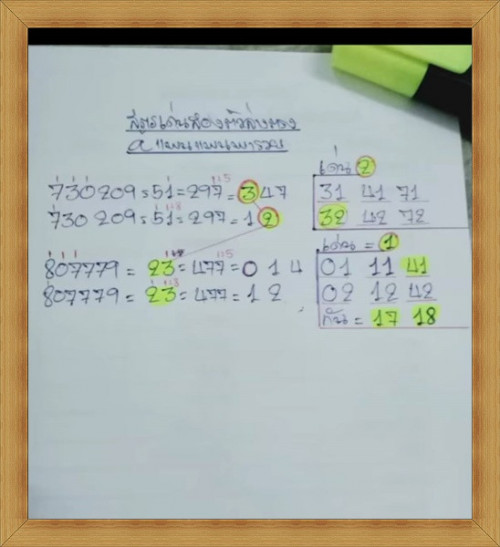 สูตรเด่นสองตัวล่างของ
a แทนแทนพารวย
730209=51=297=347
730209=51=297=12
807779=23=477=014
807779=23=477=12
เด่น 2
31 41 71
32 42 72
เด่น = 1
01 11 41
02 12 42
กัน = 17 18